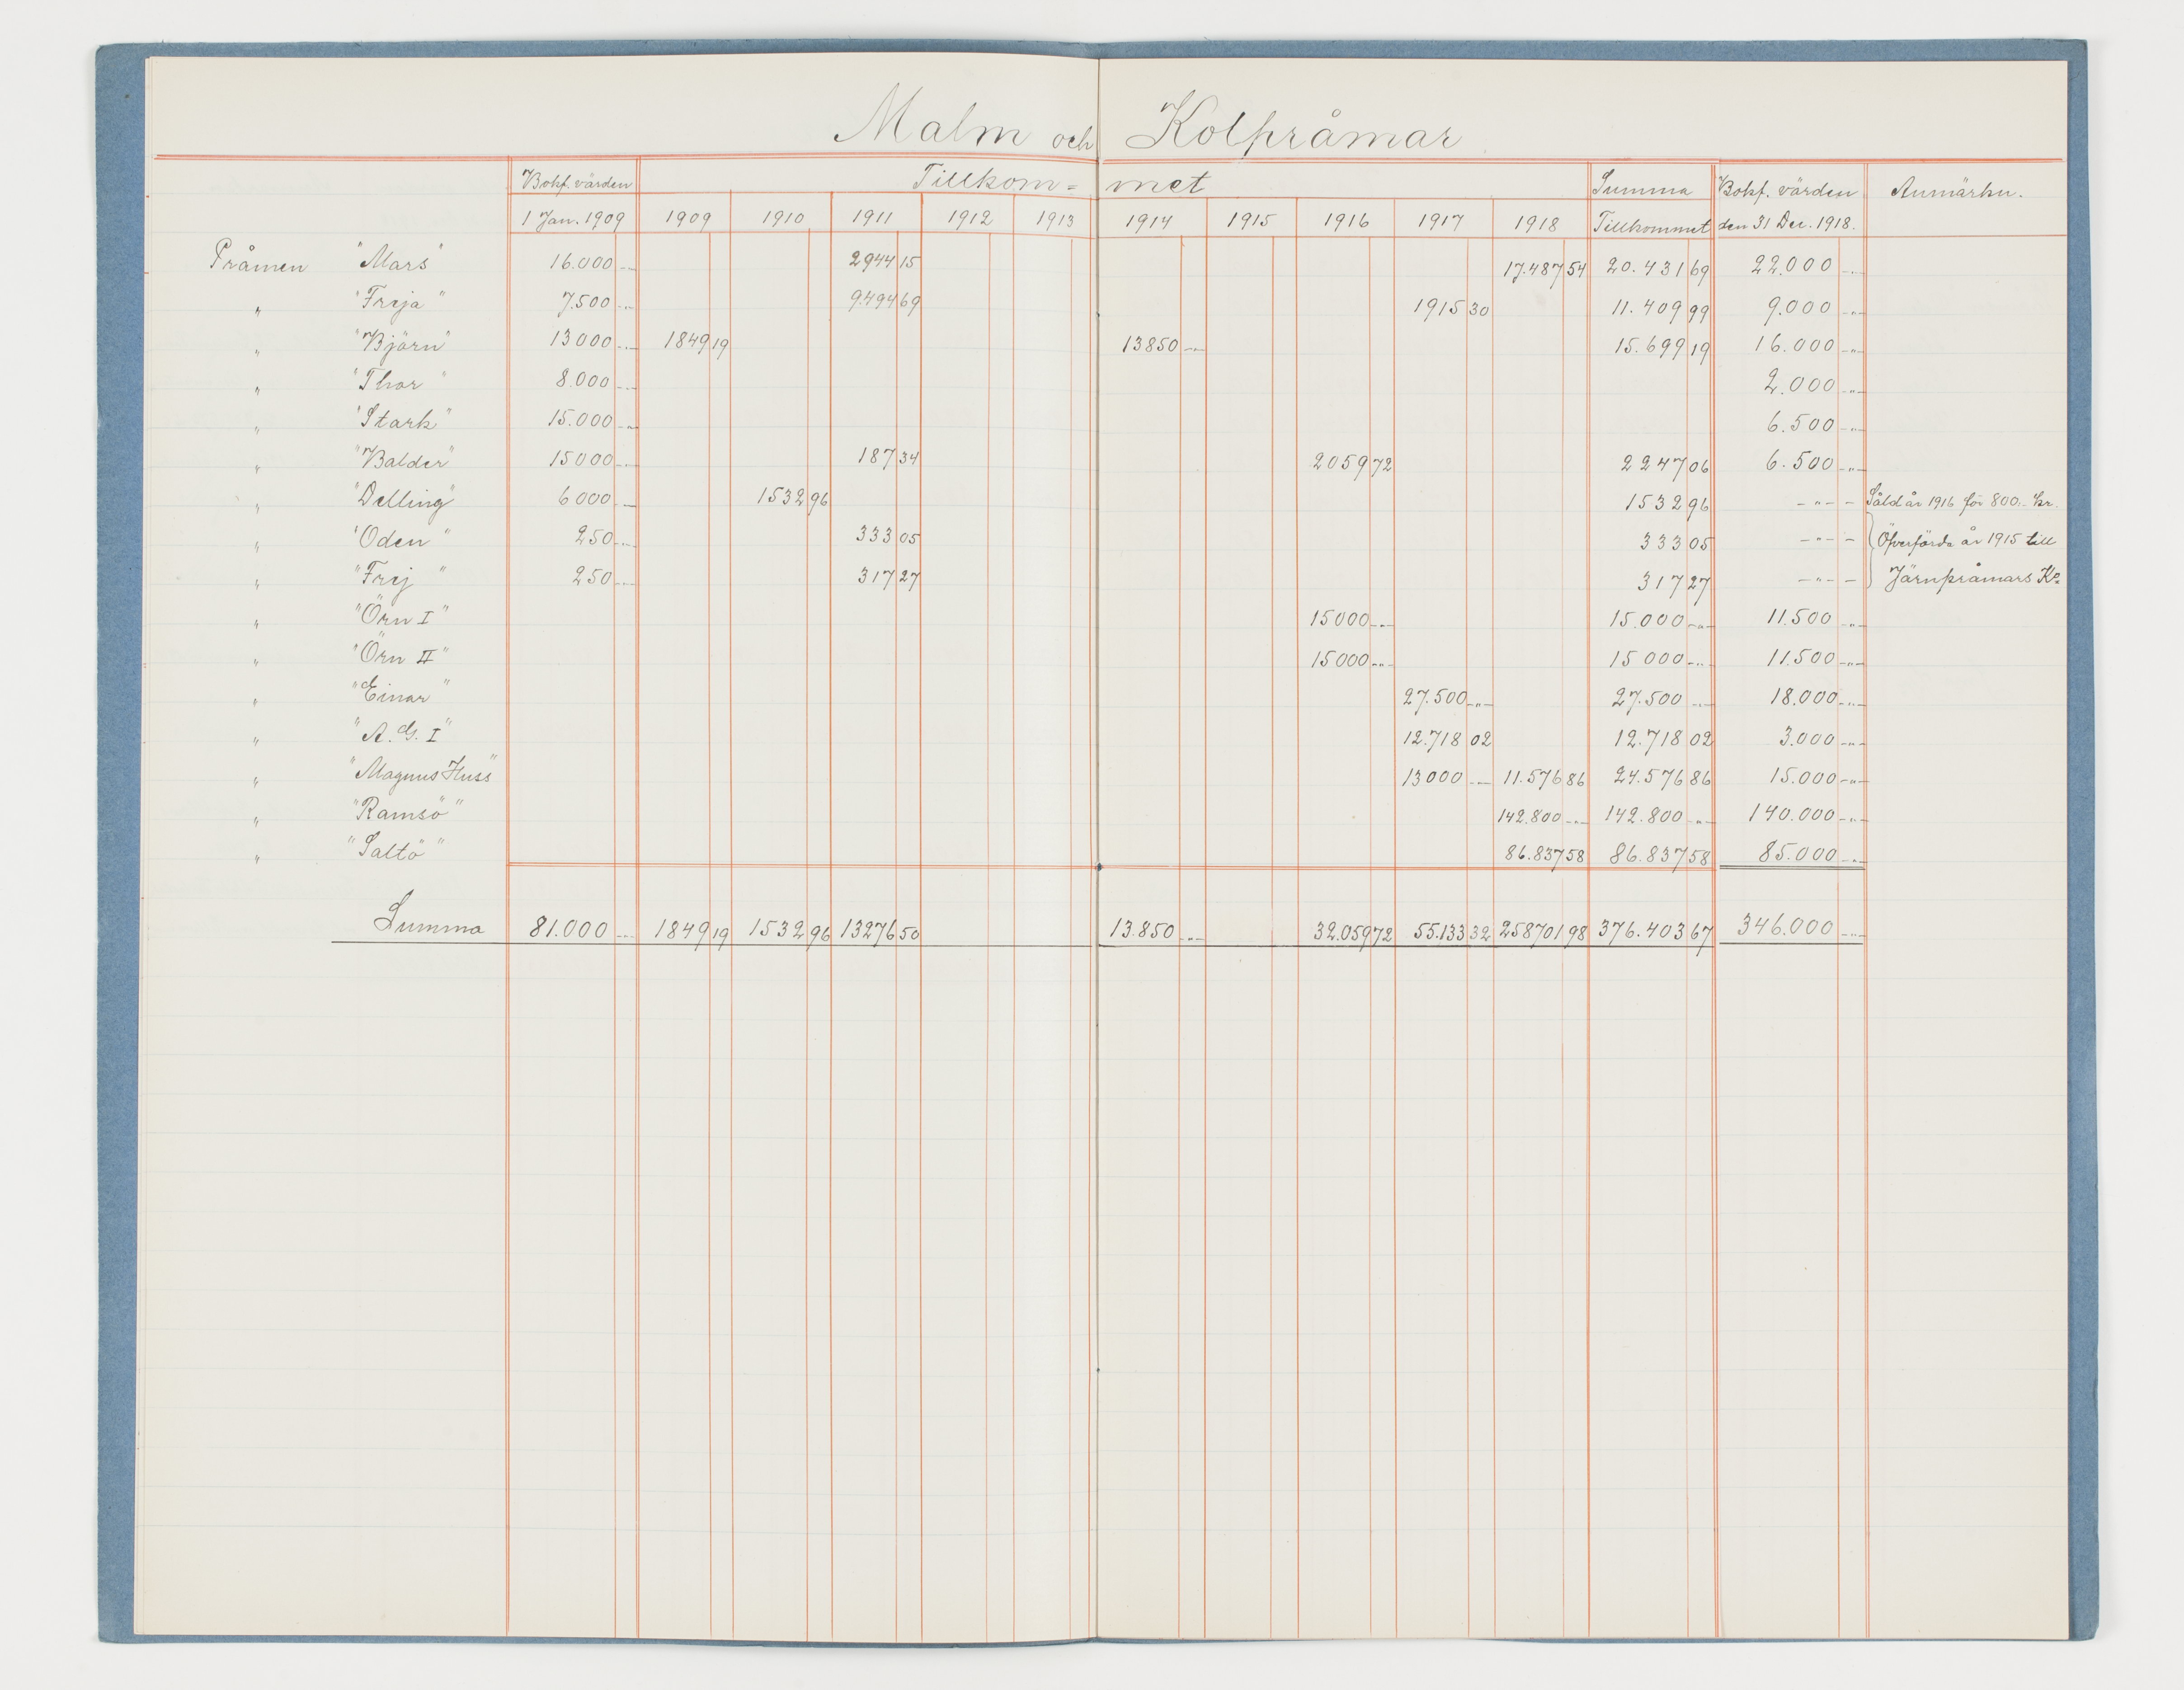 Malm och Kolpråmar
Bokf. värden Tillkom= met Summa Bokf. värden Anmärkn.
1 Jan. 1909 1909 1910 1911 1912 1913 1914 1915 1916 1917 1918 Tillkommet den 31 Dec. 1918.
Pråmen "Mars" 16.000 -"- 2944 15 17.487 54 20.431 69 22.000 -"-
" "Freja" 7.500 -"- 9.494 69 1915 30 11.409 99 9.000 -"-
" "Björn" 13000 -"- 1849 19 13850 -"- 15.699 19 16.000 -"-
" "Thor" 8.000 -"- 2.000 -"-
" "Stark" 15.000 -"- 6.500 -"-
" "Balder" 15000 -"- 187 34 2059 72 2247 06 6.500 -"-
" "Delling" 6000 -"- 1532 96 1532 96 -"- - Såld år 1916 för 800:- kr.
" "Oden" 250 -"- 333 05 333 05 -"- - Öfverförda år 1915 till
" "Frej" 250 -"- 317 27 317 27 -"- - Järnpråmars Ko
" "Örn I" 15000 -"- 15.000 -"- 11.500 -"-
" "Örn II" 15000 -"- 15000 -"- 11.500 -"-
" "Einar" 27.500 -"- 27.500 -"- 18.000 -"-
" "A. G. I" 12.718 02 12.718 02 3.000 -"-
" "Magnus Huss" 13000 -"- 11.576 86 24.576 86 15.000 -"-
" "Ramsö" 142.800 -"- 142.800 -"- 140.000 -"-
" "Saltö" 86.837 58 86.837 58 85.000 -"-
Summa 81.000 -"- 1849 19 1532 96 13276 50 13.850 -"- 32.059 72 55.133 32 258701 98 376.403 67 346.000 -"-